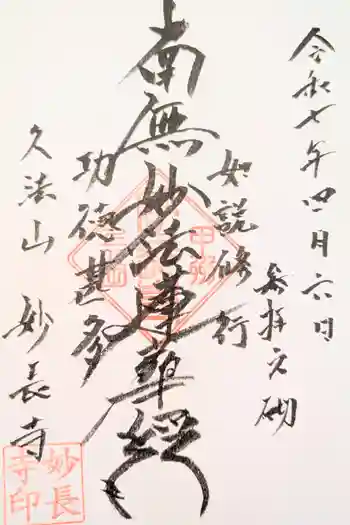 令和七年四月六日
参拝之砌
如説修行
南無妙法蓮華経
功徳甚多
久法山 妙長寺
妙長
寺印